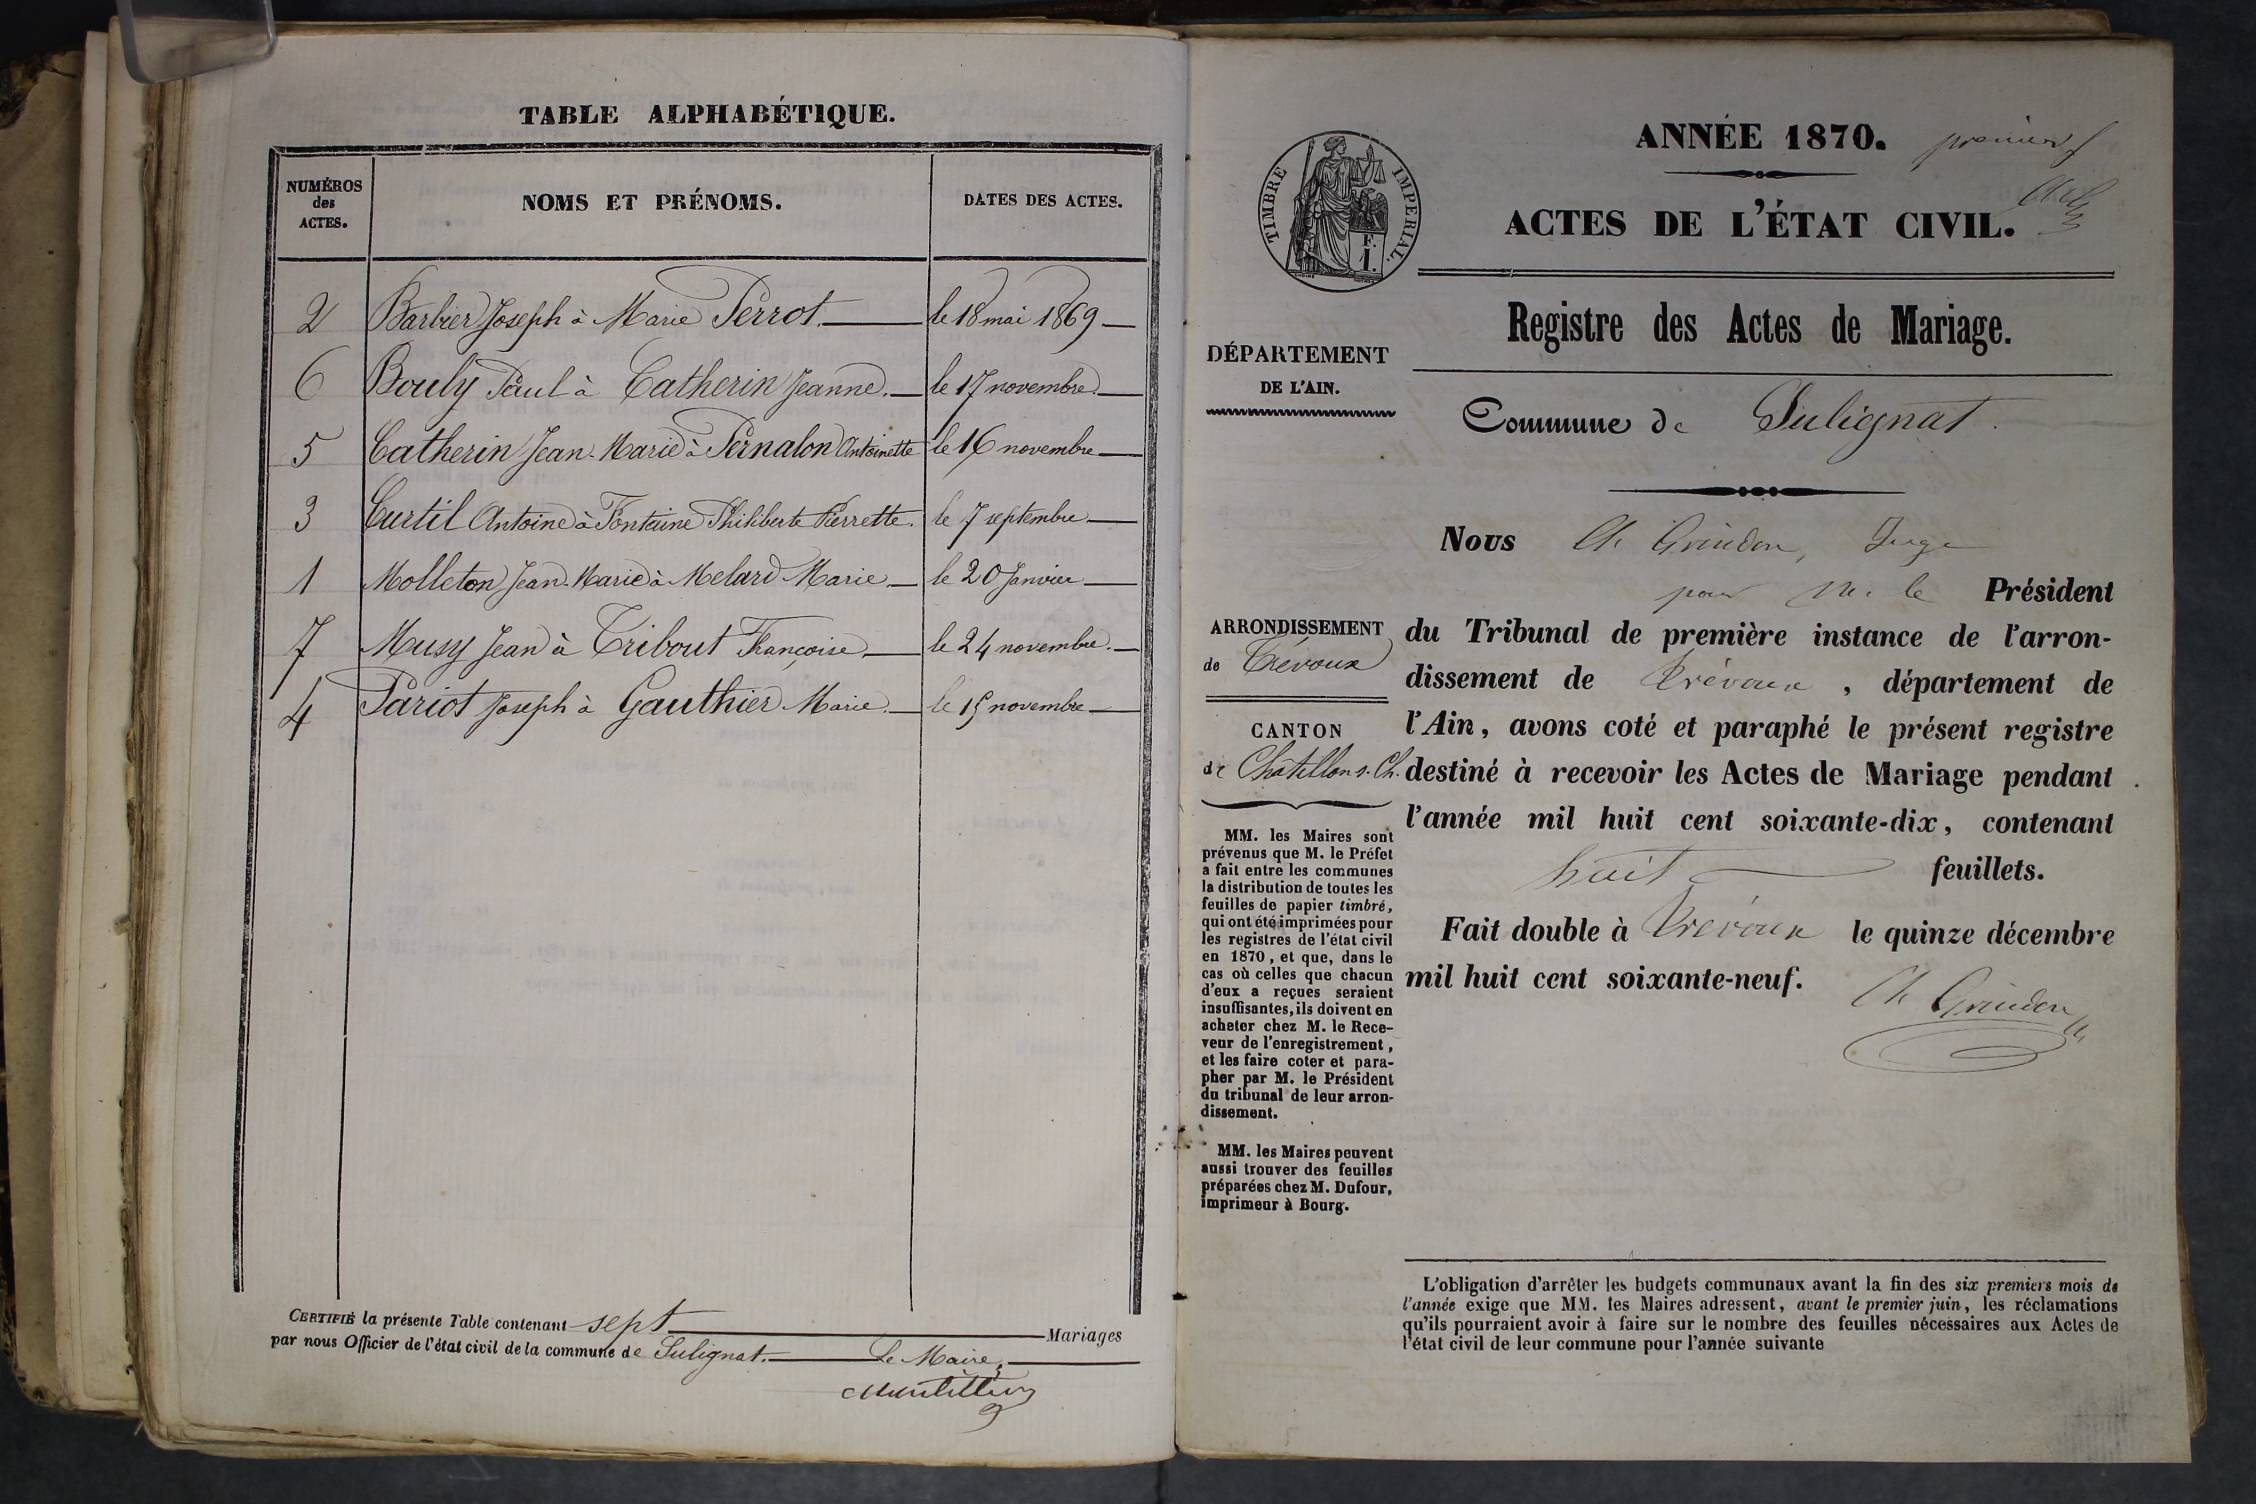 TABLE ALPHABÉTIQUE.
NUMÉROS
des
ACTES.
NOMS ET PRÉNOMS.
DATES DES ACTES.
2 Barbier Joseph à Marie Perrot. le 18 mai 1869
6 Bouly Paul à Catherin Jeanne. le 17 novembre.
5 Catherin Jean-Marie à Pernalon Antoinette le 16 novembre
3 Curtil Antoine à Fontaine Philiberte Pierrette. le 7 septembre
1 Molleton Jean-Marie à Melard Marie le 20 Janvier
7 Musy Jean à Tribout Françoise le 24 novembre.
4 Pariot Joseph à Gauthier Marie. le 15 novembre
CERTIFIÉ la présente Table contenant sept Mariages
par nous Officier de l'état civil de la commune de Sulignat. Le Maire,
ANNÉE 1870.
premier
TIMBRE IMPERIAL.
F.
1.
ACTES DE L'ÉTAT CIVIL.
Registre des Actes de Mariage.
DÉPARTEMENT
DE L'AIN.
Commune de Sulignat.
ARRONDISSEMENT
de Trévoux
CANTON
de Châtillon s. Ch.
MM. les Maires sont
prévenus que M. le Préfet
a fait entre les communes
la distribution de toutes les
feuilles de papier timbré,
qui ont été imprimées pour
les registres de l'état civil
en 1870, et que, dans le
cas où celles que chacun
d'eux a reçues seraient
insuffisantes, ils doivent en
acheter chez M. le Rece-
veur de l'enregistrement,
et les faire coter et para-
pher par M. le Président
du tribunal de leur arron-
dissement.
MM. les Maires peuvent
aussi trouver des feuilles
préparées chez M. Dufour,
imprimeur à Bourg.
Nous Ch Grindon, Juge
pour M. le Président
du Tribunal de première instance de l'arron-
dissement de Trévoux, département de
l'Ain, avons coté et paraphé le présent registre
destiné à recevoir les Actes de Mariage pendant
l'année mil huit cent soixante-dix, contenant
huit feuillets.
Fait double à Trévoux le quinze décembre
mil huit cent soixante-neuf.
Ch Grindon
L'obligation d'arrêter les budgets communaux avant la fin des six premiers mois de
l'année exige que MM. les Maires adressent, avant le premier juin, les réclamations
qu'ils pourraient avoir à faire sur le nombre des feuilles nécessaires aux Actes de
l'état civil de leur commune pour l'année suivante